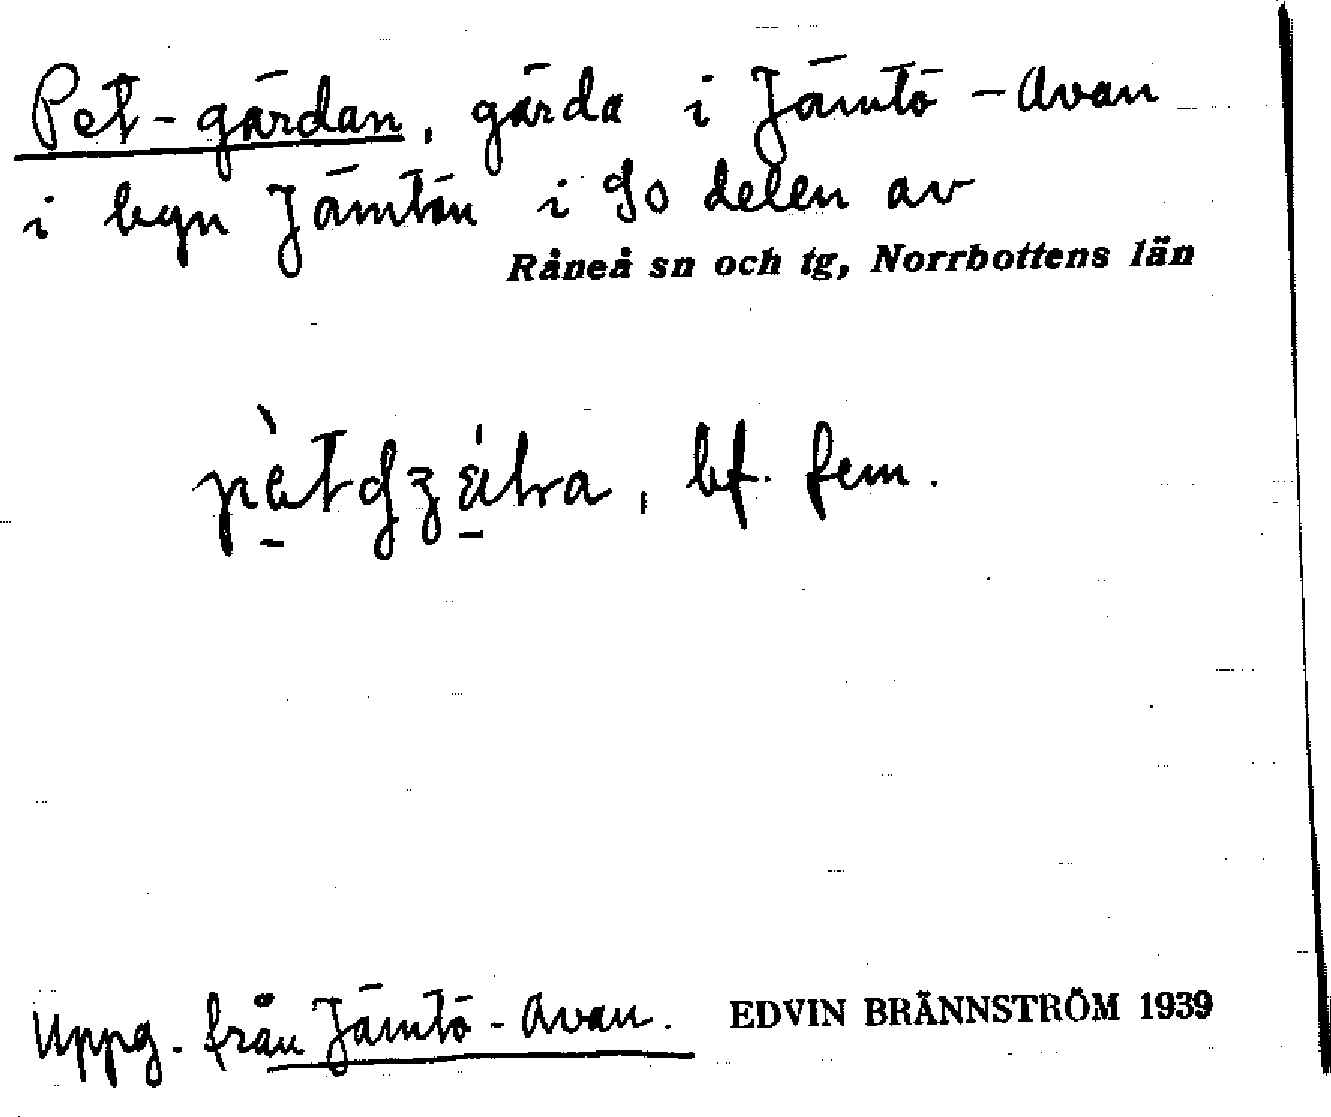 Pet-gärdan, gärda i Jämtö-Avan
i byn Jämtön i So delen av
Råneå sn och tg, Norrbottens län
bf. fem.
Uppg. från Jämtö-Avan. EDVIN BRÄNNSTRÖM 1939